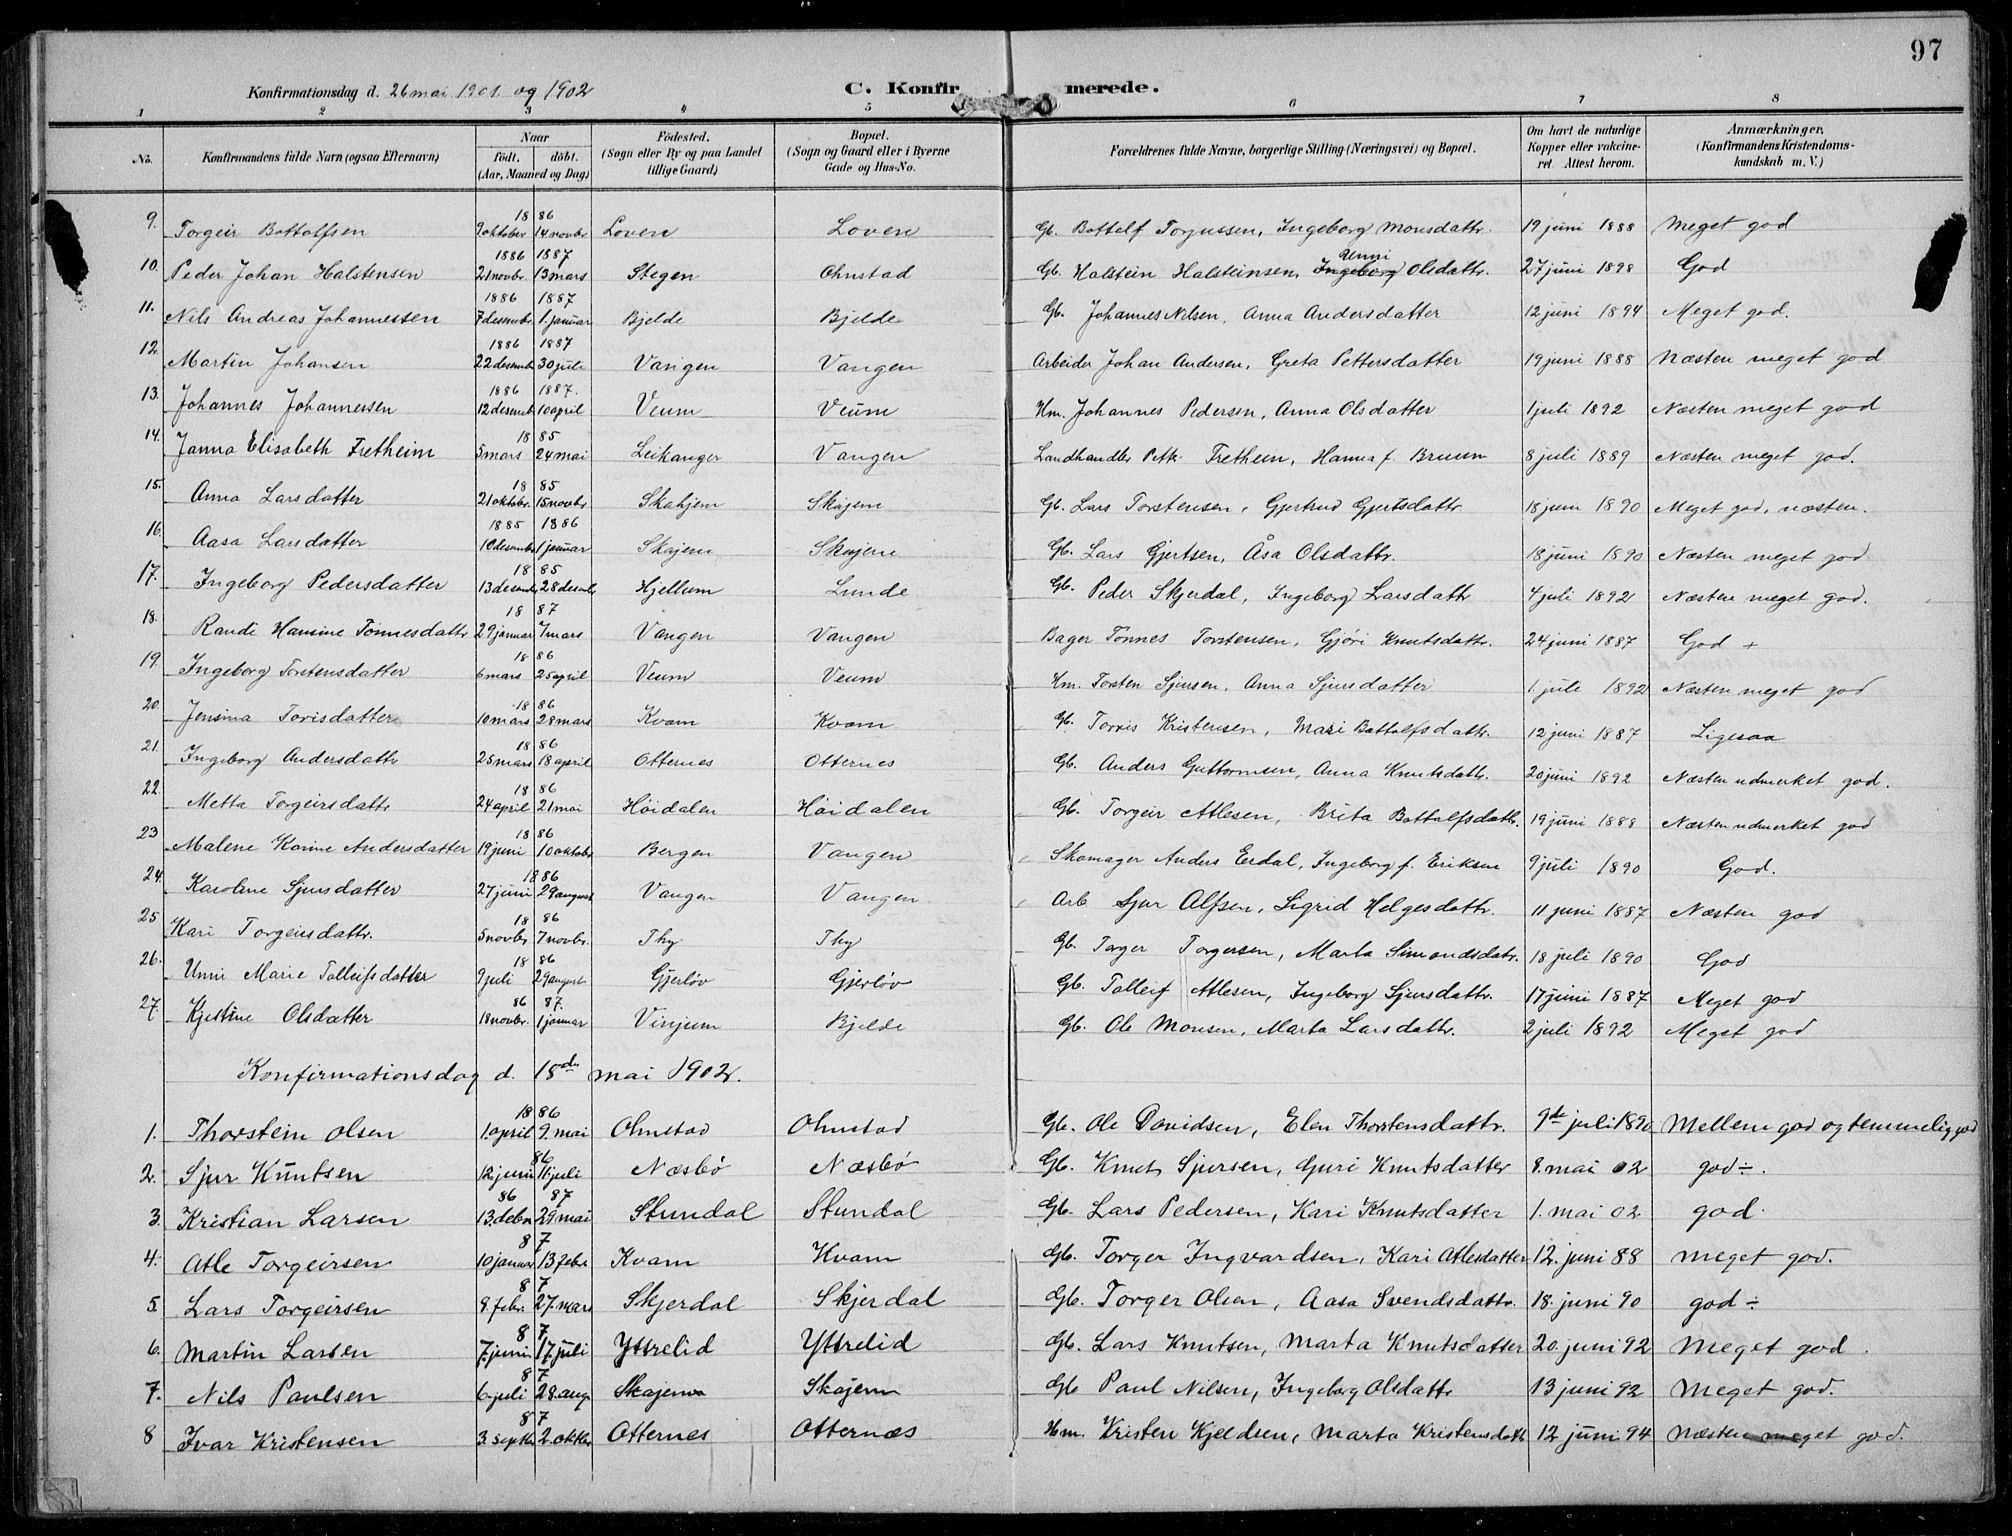 97
Konfirmationsdag d. 26 mai 1901. og 1902 C. Konfirmerede.
1 2 3 4 5 6 7 8
No. Konfirmandens fulde Navn (ogsaa Efternavn) Naar født. døbt. (Aar, Maaned og Dag) Fødested. (Sogn eller By og paa Landet tillige Gaard) Bopæl. (Sogn og Gaard eller i Byerne Gade og Hus-No. Forældrenes fulde Navne, borgerlige Stilling (Næringsvei) og Bopæl. Om havt de naturlige Kopper eller vakcineret. Attest herom. Anmærkninger. (Konfirmandens Kristendomskundskab m. V.)
9. Torgeir Bottolfsen 1886 9 oktober 14 novbr Loven Loven Gb. Bottolf Torjussen, Ingeborg Monsdattr. 19 juni 1888 Meget god
10. Peder Johan Halstensen 1886 1887 21 novbr 13 mars Stegen Ohnstad Gb. Halstein Halsteinsen, Ingeborg Unni Olsdattr. 27 juni 1898 God
11. Nils Andreas Johannessen 1886 1887 7 desembr 1. januar Bjelde Bjelde Gb. Johannes Nilsen, Anna Andersdatter 12 juni 1894 Meget god.
12. Martin Johansen 1886 1887 22 desembr 30 juli Vangen Vangen Arbeider Johan Andersen, Greta Pettersdatter 19 juni 1888 Næsten meget god
13. Johannes Johannessen 1886 1887. 12 desemb 10 april Veum Veum Hm. Johannes Pedersen, Anna Olsdatter 1 juli 1892 Næsten meget god
14. Janna Elisabeth Fretheim 1885 5 mars 24 mai Leikanger Vangen Landhandler Pettr. Fretheim, Hanna f. Bruum 8 juli 1889 Næsten meget god.
15. Anna Larsdatter 1885 21 oktobr. 15 novbr. Skahjem Skajem Gb. Lars Torstensen, Gjertrud Gjertsdattr 18 juni 1890 Meget god, næsten.
16. Aasa Larsdatter 1885 1886 10 desembr 1 januar Skajem Skajem Gb. Lars Gjertsen, Åsa Olsdattr. 18 juni 1890 Næsten meget god
17. Ingeborg Pedersdatter 1885 13 desember 28 desmbr Hjellum Lunde Gb. Peder Skjerdal, Ingeborg Larsdattr 4 juli 1892 Næsten meget god.
18. Randi Hansine Tønnesdattr 1887 29 januar 7 mars Vangen Vangen Bager Tønnes Torstensen, Gjøri Knutsdattr. 24 juni 1887 God +
19. Ingeborg Torstensdatter 1886 6 mars 25 april Veum Veum Hm. Torsten Sjursen, Anna Sjursdatter 1. juli 1892 Næsten meget god
20. Jensina Torisdatter 1886 10 mars 28 mars Kvam Kvam Gb. Torris Kristensen, Mari Bottolfsdattr. 12 juni 1887 Ligesaa
21. Ingeborg Andersdattr 1886 25 mars 18 april Otternes Otternes Gb. Anders Guttormsen, Anna Knutsdattr. 20 juni 1892 Næsten udmerket god.
22. Metta Torgeirsdattr 1886 24 april 21 mai Høidalen Høidalen Gb. Torgeir Atlesen, Brita Bottolfsdattr. 19 juni 1888 Næsten udmerket god
23 Malene Karine Andersdatter 1886 19 juni 10 oktobr Bergen Vangen Skomager Anders Erdal, Ingeborg f. Eriksen 9 juli 1890 God.
24. Karoline Sjursdatter 1886 27 juni 29 august Vangen Vangen Arb. Sjur Alfsen, Sigrid Helgesdattr. 11 juni 1887 Næsten god
25 Kari Torgeirsdattr. 1886 5 novbr 7 novbr. Thy Thy Gb. Torger Torgersen, Marta Simondsdatr. 18 juli 1890 God
26. Unni Marie Tolleifsdatter 1886 9 juli 29 august Gjerløv Gjerløv Gb. Tolleif Atlesen, Ingeborg Sjursdattr. 17 juni 1887 Meget god
27. Kjestine Olsdatter 86 87. 18 novbr. 1 januar Vinjum Bjelde Gb. Ole Monsen, Marta Larsdattr. 2 juli 1892 Meget god
Konfirmationsdag d. 18de mai 1902.
1. Thorstein Olsen 1886 1. april 9. mai Ohnstad Ohnstad Gb. Ole Davidsen, Elen Thorstensdattr. 9de juli 1890 Mellem god og temmelig god
2. Sjur Knutsen 86 12 juni 11 juli Næsbø Næsbø Gb. Knut Sjursen, Guri Knutsdatter 8. mai 02 god ÷.
3. Kristian Larsen 86 87 13. debr 29 mai Stundal Stundal Gb. Lars Pedersen, Kari Knutsdatter 1. mai 02 god
4. Atle Torgeirsen 87 10 januar 13 febr. Kvam Kvam Gb. Torger Ingvardsen, Kari Atlesdatter 12. juni 88 meget god.
5. Lars Torgeirsen 87 9. febr. 27. mars Skjerdal Skjerdal Gb. Torger Olsen, Aasa Svendsdattr. 18. juni 90 god ÷
6. Martin Larsen 87 7. juni 17 juli Yttrelid Yttrelid Gb. Lars Knutsen, Marta Knutsdatter 20. juni 92 Meget god.
7. Nils Paulsen 87 6 juli 28. aug Skajem Skajem Gb Paul Nilsen, Ingeborg Olsdattr 13 juni 92 Meget god.
8 Ivar Kristensen 87 3. septbr 2. oktbr Otternes Otternæs Hm. Kristen Kjeldsen, Marta Kristensdattr 12 juni 94 Næsten meget god.